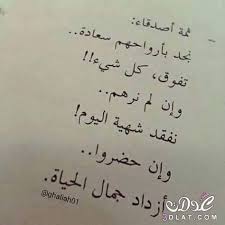 - ثمة أصدقاء:
نجد بأرواحهم سعادة..
تفوق، كل شيء!!
وإن لم نرهم..
نفقد شهية اليوم!
وإن حضروا..
أزداد جمال الحياة.
@ghaliah01
عدلات
3DLAT.COM